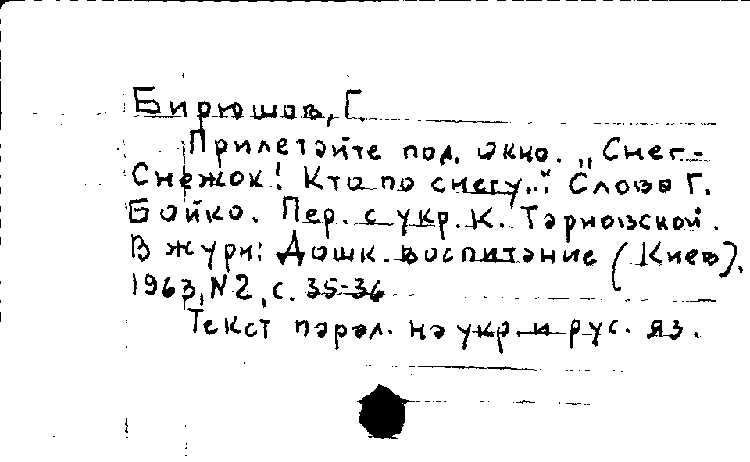 Бирюшов, Г.
Прилетайте под окно. „Снег-
Снежок! Кто по снегу..." Слова Г.
Бойко. Пер. с укр. К. Тарновской.
В журн: Дошк. воспитание (Киев),
1963, N2, с. 35-36
Текст парал. на укр. и рус. яз.